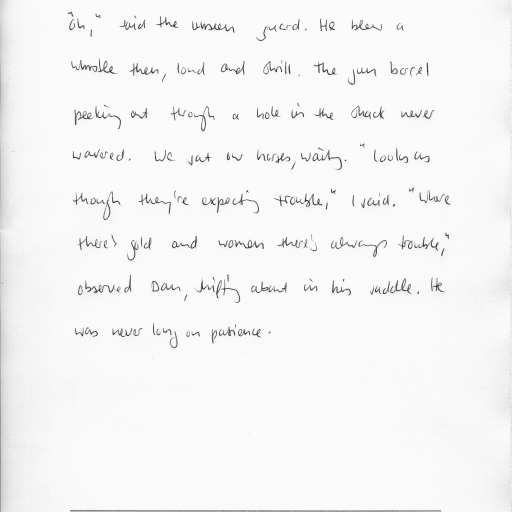 "Oh," said the unseen guard. He blew a
whistle then, loud and shrill. The gun barrel
peeking out through a hole in the shack never
wavered. We sat our horses, waiting. "Looks as
though they're expecting trouble," I said. "Where
there's gold and women there's always trouble,"
observed Dan, shifting about in his saddle. He
was never long on patience.